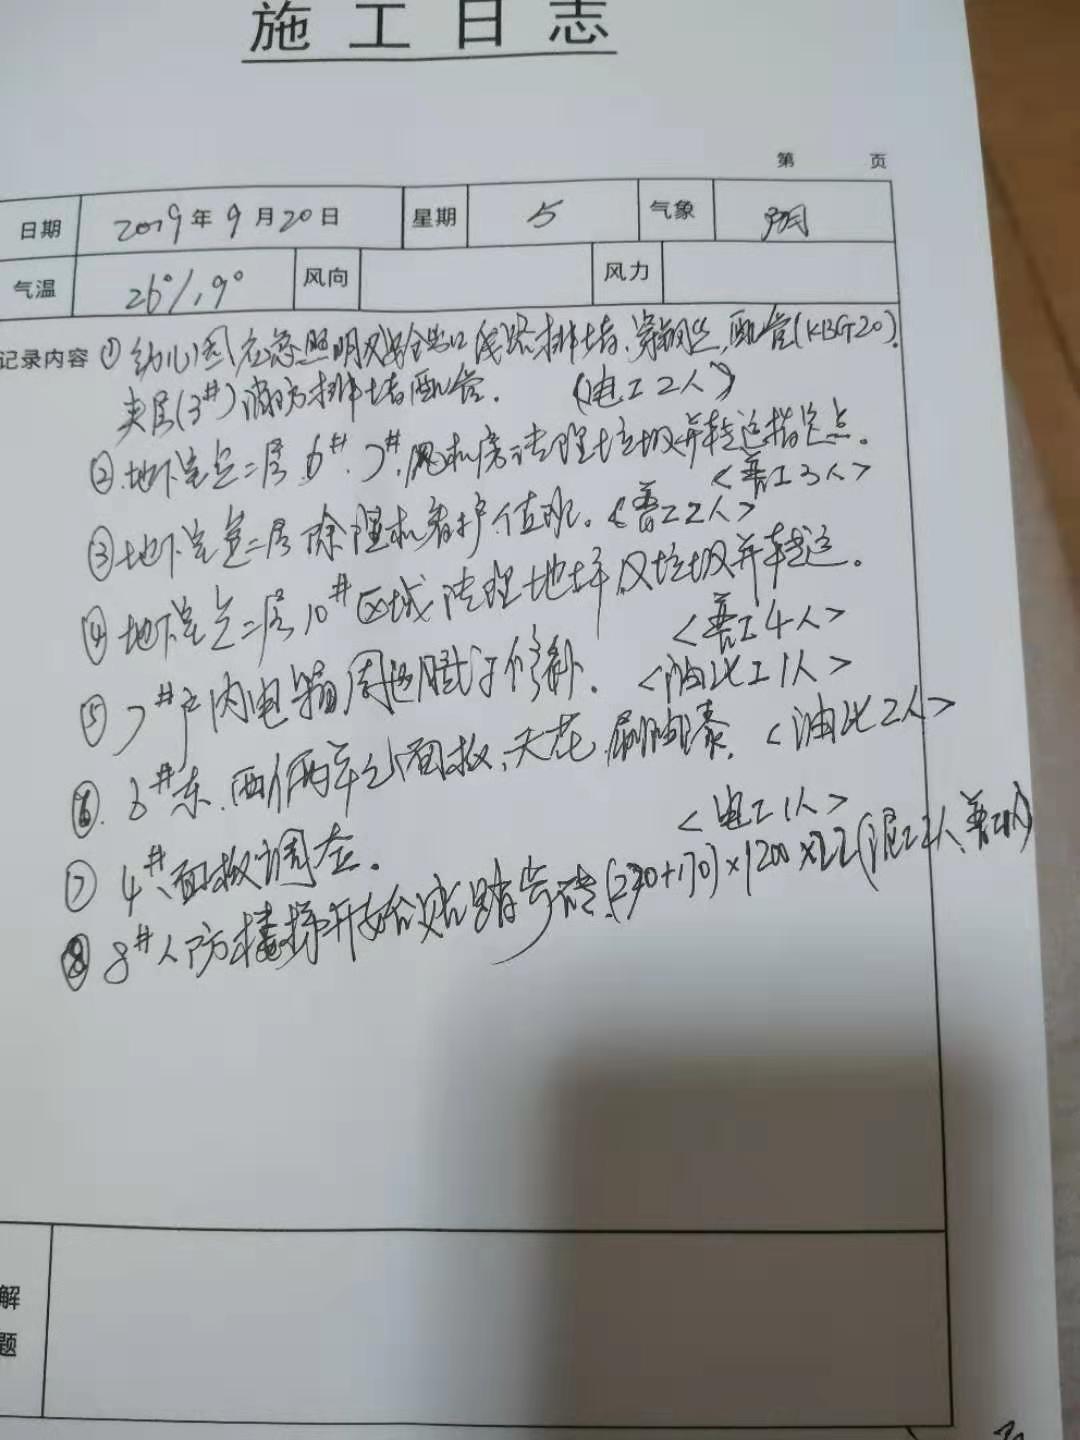 施工日志
第 页
日期 2019年9月20日 星期 5 气象 阴
气温 26°/19° 风向 风力
记录内容 ① 幼儿园应急照明及安全出口线路排堵、穿钢丝、配管(KBG20).
夹层(3#)消防排堵配管. (电工2人)
②.地下室负二层.6#.7#.风机房清理垃圾并转运指定点.
<普工3人>
③地下室负二层除湿机看护值班.<普工2人>
④地下室负二层10#区域清理地坪及垃圾并转运.
<普工4人>
⑤7#户内电箱周边腻子修补. <油化工1人>
⑥.6#东.西 面板、天花刷油漆. <油化2人>
⑦4#面板调查. <电工1人>
⑧8#人防楼梯开始贴踏步砖.(270+170)×1200×22(泥工2人、普工1人)
解
题